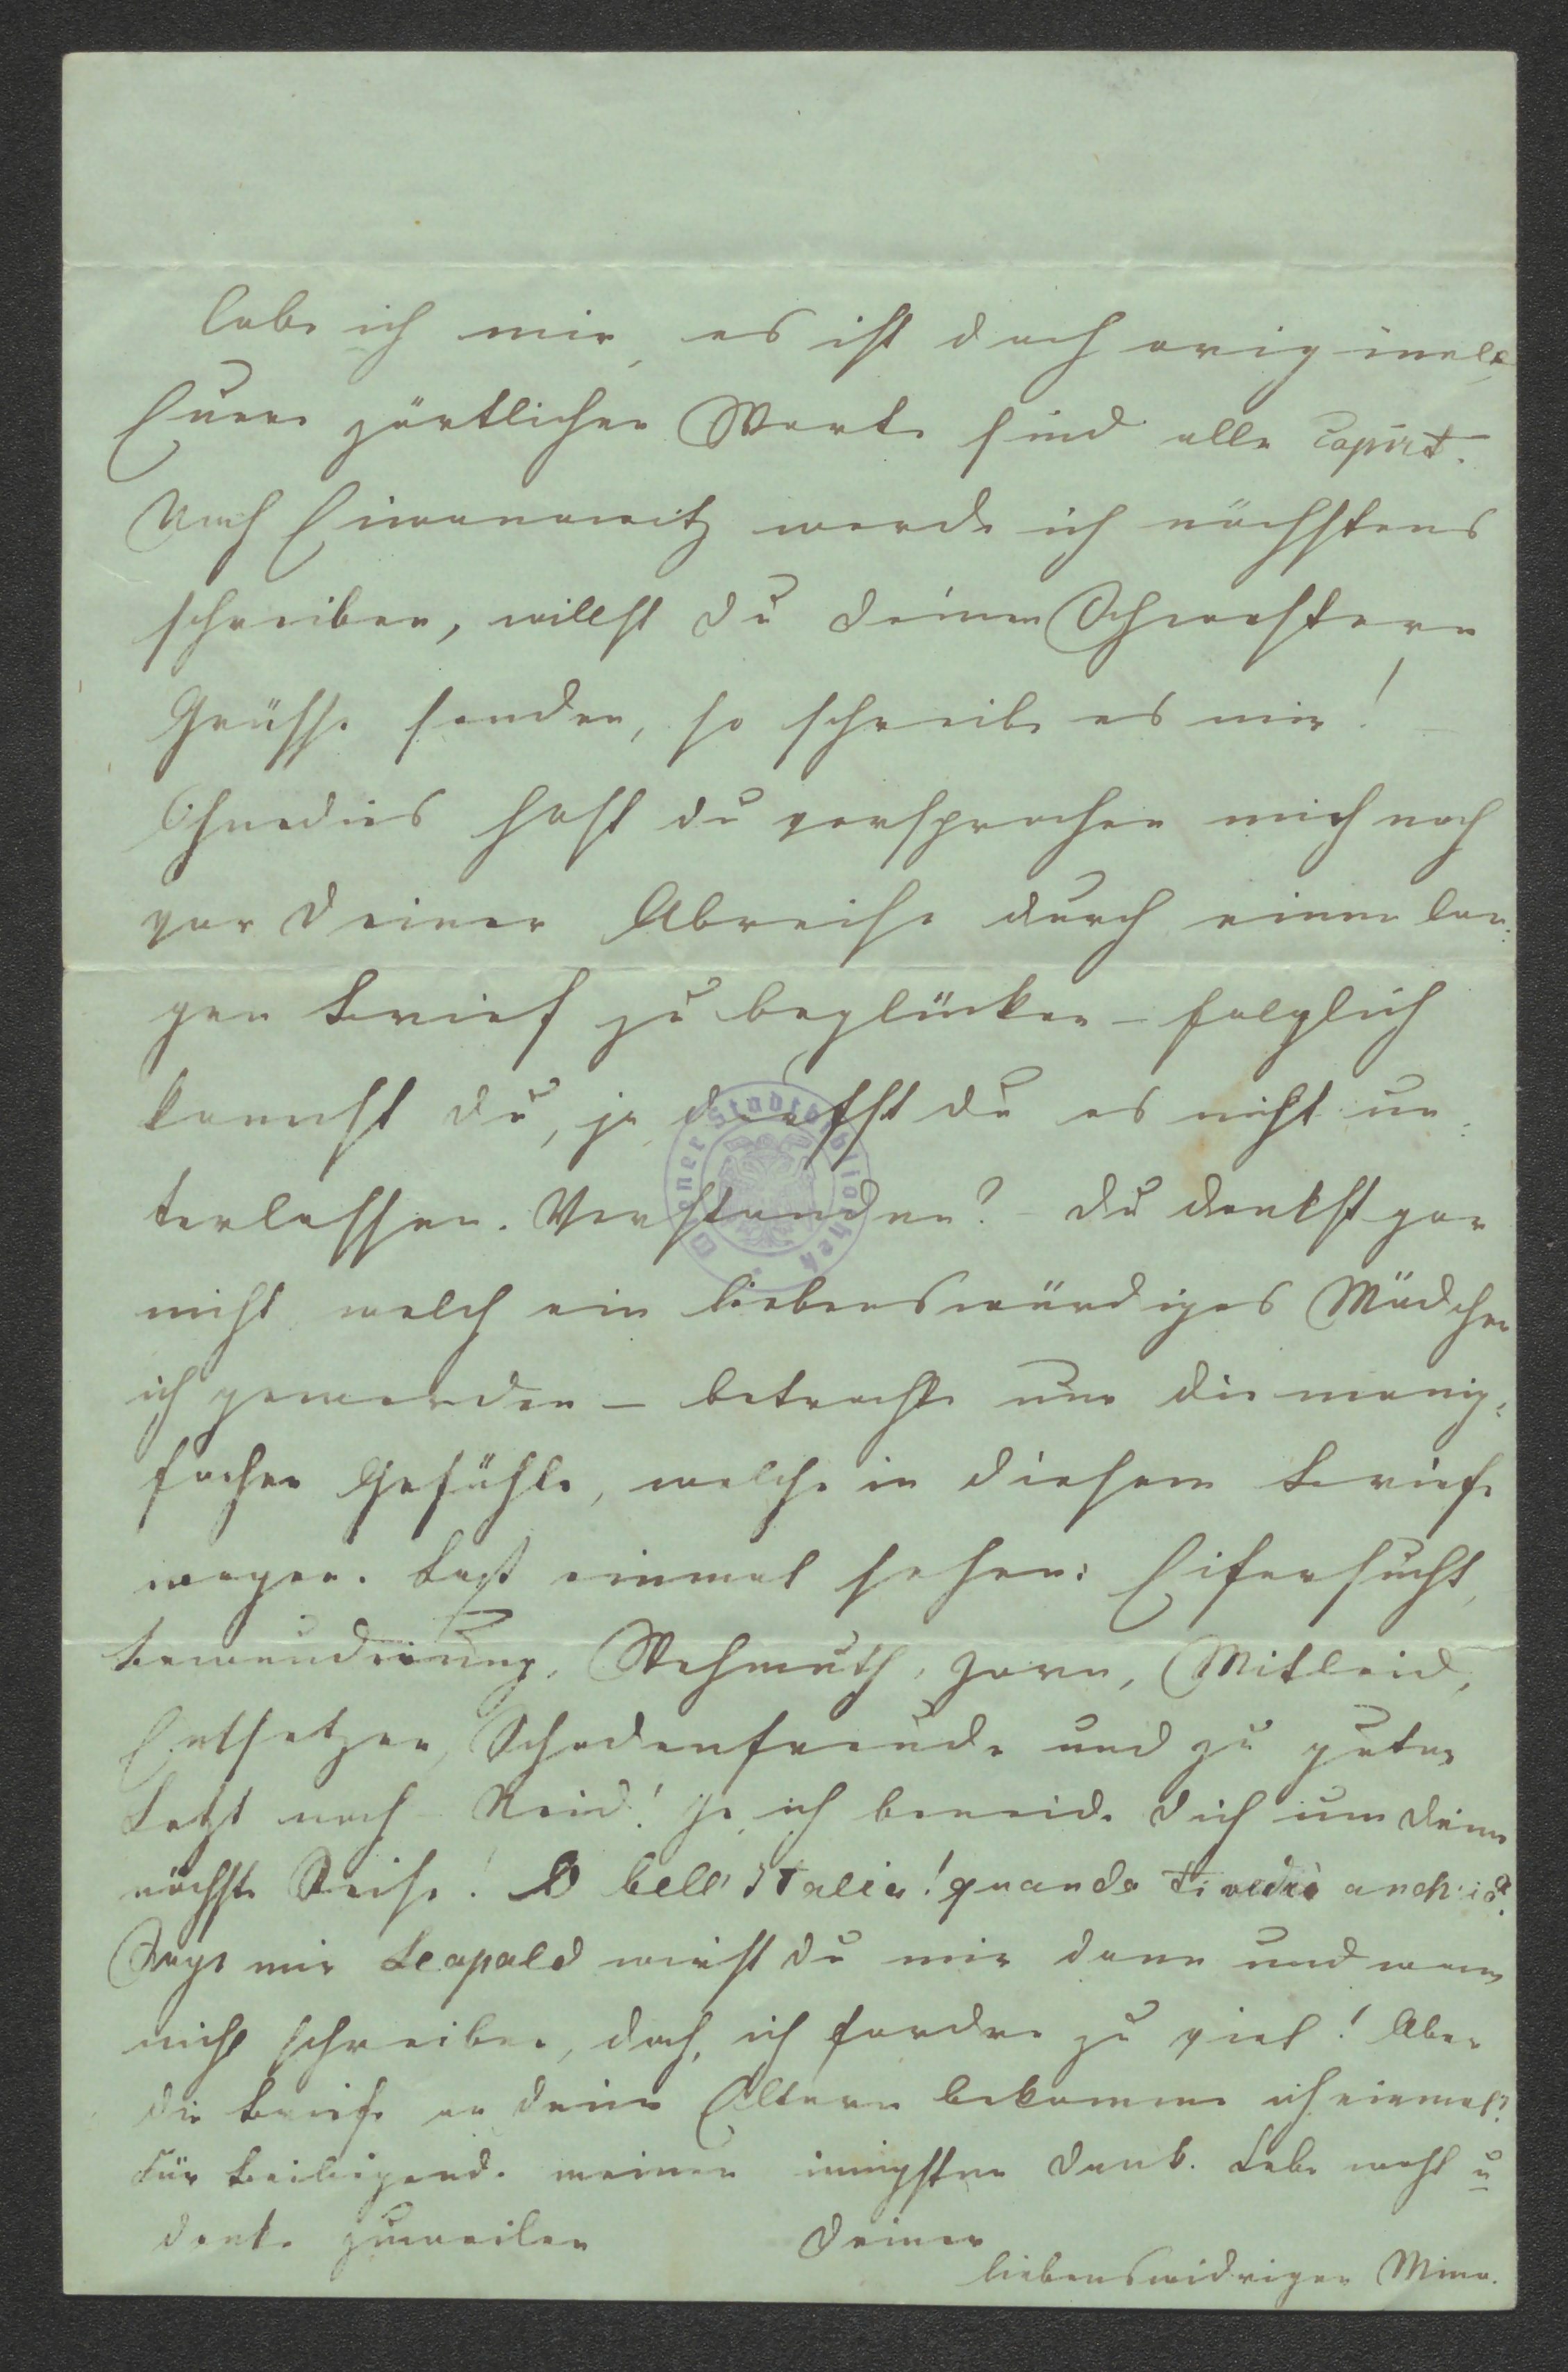 lobe ich mir, es ist doch originell,
Euere zärtlichen Worte sind alle copirt.
Nach Eiwanowitz werde ich nächstens
schreiben, willst Du deinen Schwestern
Grüsse senden, so schreibe es mir!
Ohnedies hast du versprochen mich noch
vor Deiner Abreise durch einen lan:
gen Brief zu beglücken – folglich
kannst du, ja darfst du es nicht un:
terlassen. Verstanden? – Du denkst gar
nicht welch ein liebenswürdiges Mädchen
ich geworden – betrachte nur die manig:
fachen Gefühle, welche in diesem Briefe
wogen. Lass einmal sehen: Eifersucht,
Bewunderung, Wehmuth, Zorn, Mitleid,
Entsetzen, Schadenfreude und zu guter
Letzt noch – Neid! Ja, ich beneide Dich um deine
nächste Reise! O bell' Italia! quando ti vedrò anch'io?
Sage mir Leopold wirst Du mir dann und wann
nicht schreiben, doch, ich fordre zu viel! Aber
die Briefe an deine Eltern bekomme ich einmal?
Für Beiliegende meinen innigsten Dank. Lebe wohl u
denke zuweilen Deiner
liebenswidrigen Mina.
Wiener Stadtbibliothek